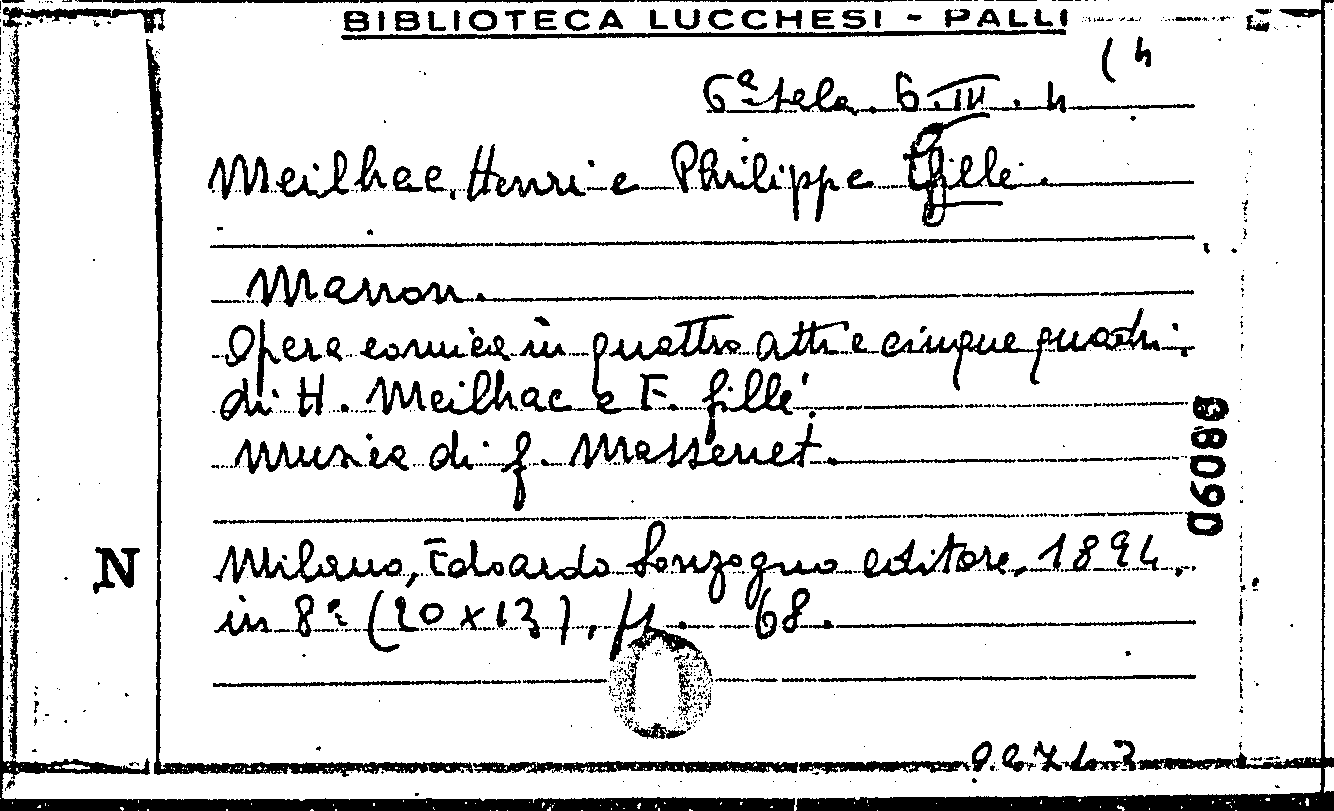 BIBLIOTECA LUCCHESI - PALLI
(4
6ª sala. 6.III.4
Meilhac, Henri e Philippe Gille.
Manon.
Opera comica in quattro atti e cinque quadri.
di H. Meilhac e F. Gille.
Musica di G. Massenet.
06088
N
Milano, Edoardo Sonzogno editore, 1894.
in 8º (20 x 13), pp. 68.